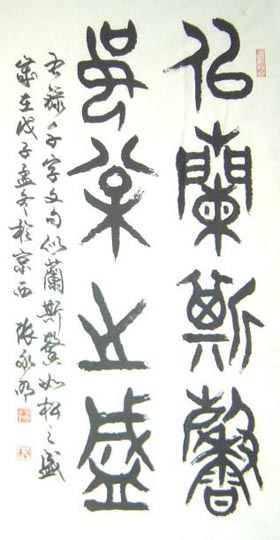 似蘭斯馨
如松之盛
録千字文句似蘭斯馨如松之盛
歲在戊子孟冬於京西 張